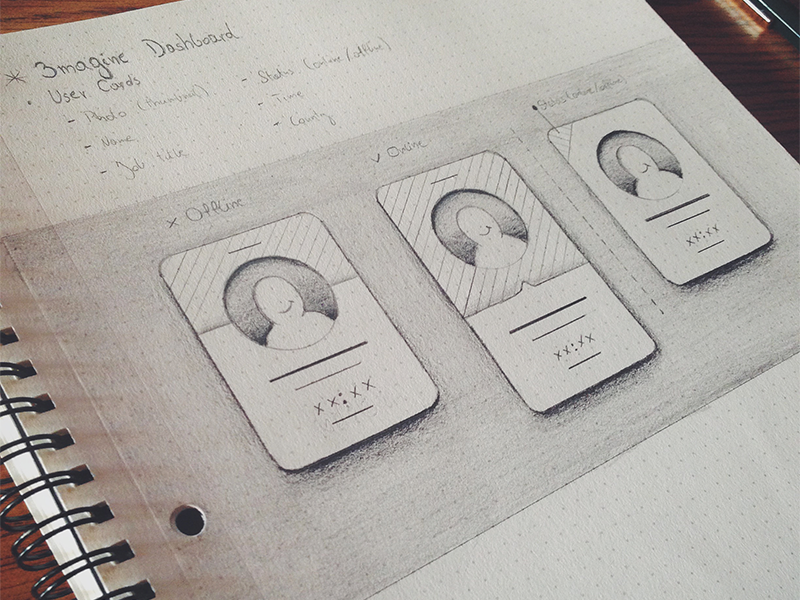 * 3magine Dashboard
• User Cards
- Photo (thumbnail)
- Name
- Job title
- Status (online/offline)
- Time
- Country
x Offline
✓ Online
• Status (online/offline)
xx:xx
xx:xx
xx:xx